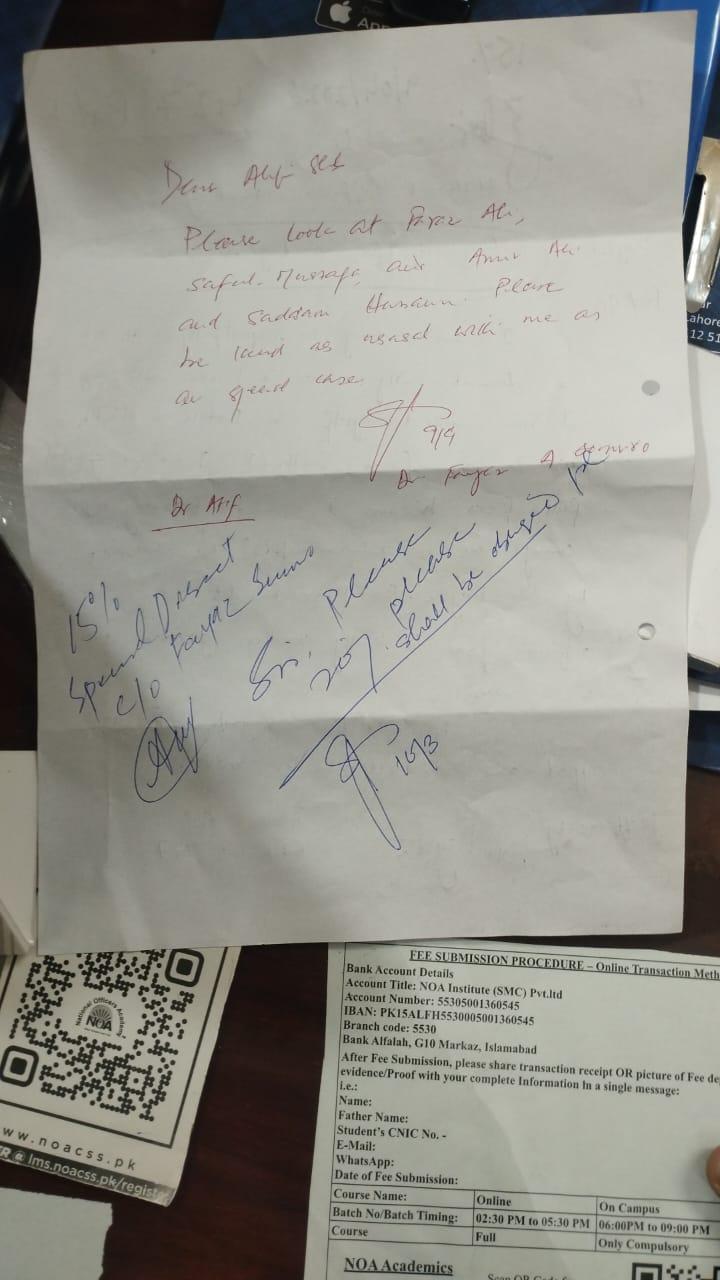 Please look at Fayaz Ali,
and Saddam Hussain. Please
be kind as usual with me as
9/4
Dr Fayaz A.
Dr Arif
15%
Special
c/o Fayaz
Sir, Please
20% please
shall be obliged pl
10/3
Lahore
12 51
National Officers Academy
NOA
www.noacss.pk
ER @ lms.noacss.pk/regist
FEE SUBMISSION PROCEDURE – Online Transaction Meth
Bank Account Details
Account Title: NOA Institute (SMC) Pvt.ltd
Account Number: 55305001360545
IBAN: PK15ALFH5530005001360545
Branch code: 5530
Bank Alfalah, G10 Markaz, Islamabad
After Fee Submission, please share transaction receipt OR picture of Fee de
evidence/Proof with your complete Information In a single message:
i.e.:
Name:
Father Name:
Student's CNIC No. -
E-Mail:
WhatsApp:
Date of Fee Submission:
Course Name: Online On Campus
Batch No/Batch Timing: 02:30 PM to 05:30 PM 06:00PM to 09:00 PM
Course Full Only Compulsory
NOA Academics